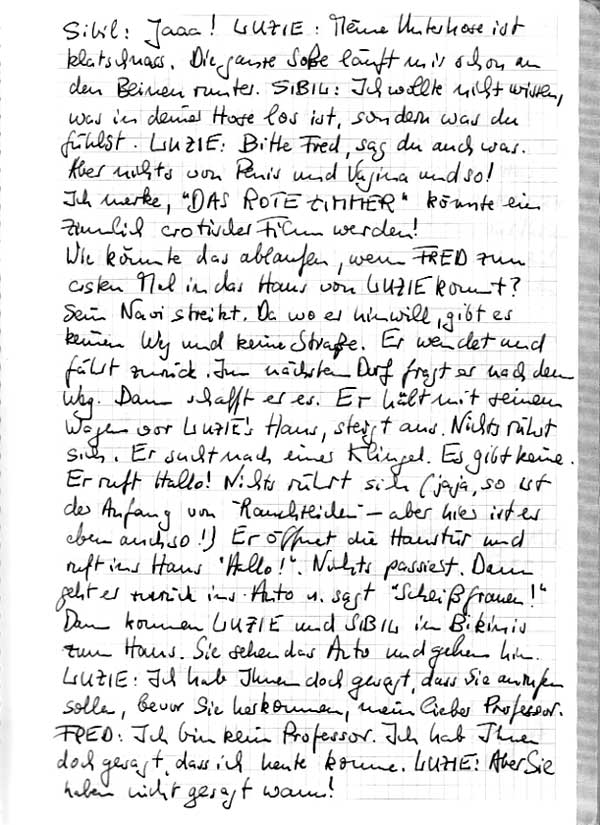 Sibil: Jaaa! LUZIE: Meine Unterhose ist
klatschnass. Die ganze Soße läuft mir schon an
den Beinen runter. SIBIL: Ich wollte nicht wissen,
was in deiner Hose los ist, sondern was du
fühlst. LUZIE: Bitte Fred, sag du auch was.
Aber nichts von Penis und Vagina und so!
Ich merke, "DAS ROTE ZIMMER" könnte ein
ziemlich erotischer Film werden!
Wie könnte das ablaufen, wenn FRED zum
ersten Mal in das Haus von LUZIE kommt?
Sein Navi streikt. Da wo er hinwill, gibt es
keinen Weg und keine Straße. Er wendet und
fährt zurück. Im nächsten Dorf fragt er nach dem
Weg. Dann schafft er es. Er hält mit seinem
Wagen vor LUZIE's Haus, steigt aus. Nichts rührt
sich. Er sucht nach einer Klingel. Es gibt keine.
Er ruft Hallo! Nichts rührt sich (jaja, so ist
der Anfang von "Rauchzeichen" – aber hier ist es
eben auch so!) Er öffnet die Haustür und
ruft ins Haus "Hallo!". Nichts passiert. Dann
geht er zurück ins Auto u. sagt "Scheißfrauen!"
Dann kommen LUZIE und SIBIL in Bikinis
zum Haus. Sie sehen das Auto und gehen hin.
LUZIE: Ich hab Ihnen doch gesagt, dass Sie anrufen
sollen, bevor Sie herkommen, mein lieber Professor.
FRED: Ich bin kein Professor. Ich hab Ihnen
doch gesagt, dass ich heute komme. LUZIE: Aber Sie
haben nicht gesagt wann!